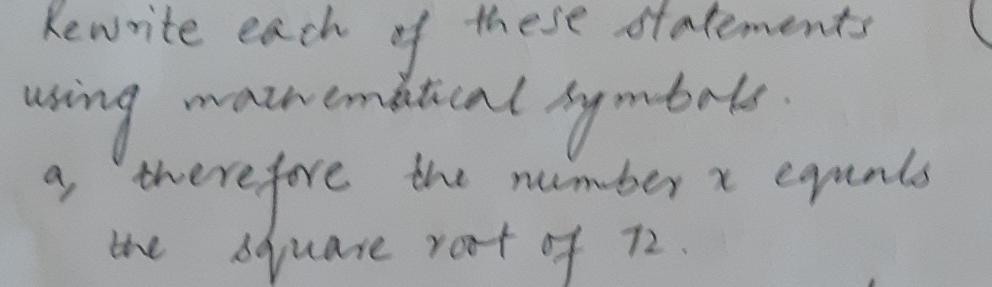 Rewrite each of these statements
using mathematical symbols.
a, therefore the number x equals
the square root of 72.